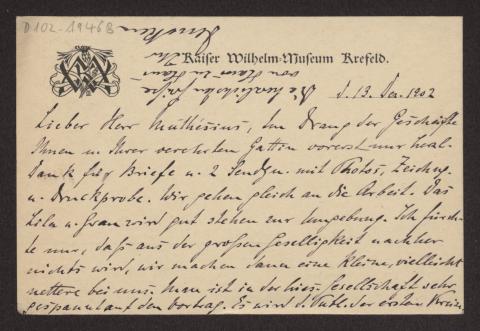 D102-19468
Kaiser Wilhelm-Museum Krefeld.
d. 13. Dez. 1902
Lieber Herr Muthesius, Im Drang der Geschäfte
Ihnen u. Ihrer verehrten Gattin vorerst nur herzl.
Dank für Briefe u. 2 Sendgn. mit Photos, Zeichng.
u. Druckprobe. Wir gehen gleich an die Arbeit. Das
Lila u. Grau wird gut stehen zur Umgebung. Ich fürch-
te nur, daß aus der großen Geselligkeit nachher
nichts wird, wir machen dann eine kleine, vielleicht
nettere bei uns. Man ist in der hies. Gesellschaft sehr
gespannt auf den Vortrag. Es wird d.
der ersten
Die herzlichsten Grüße
von Haus zu Haus
Ihr
Deneken